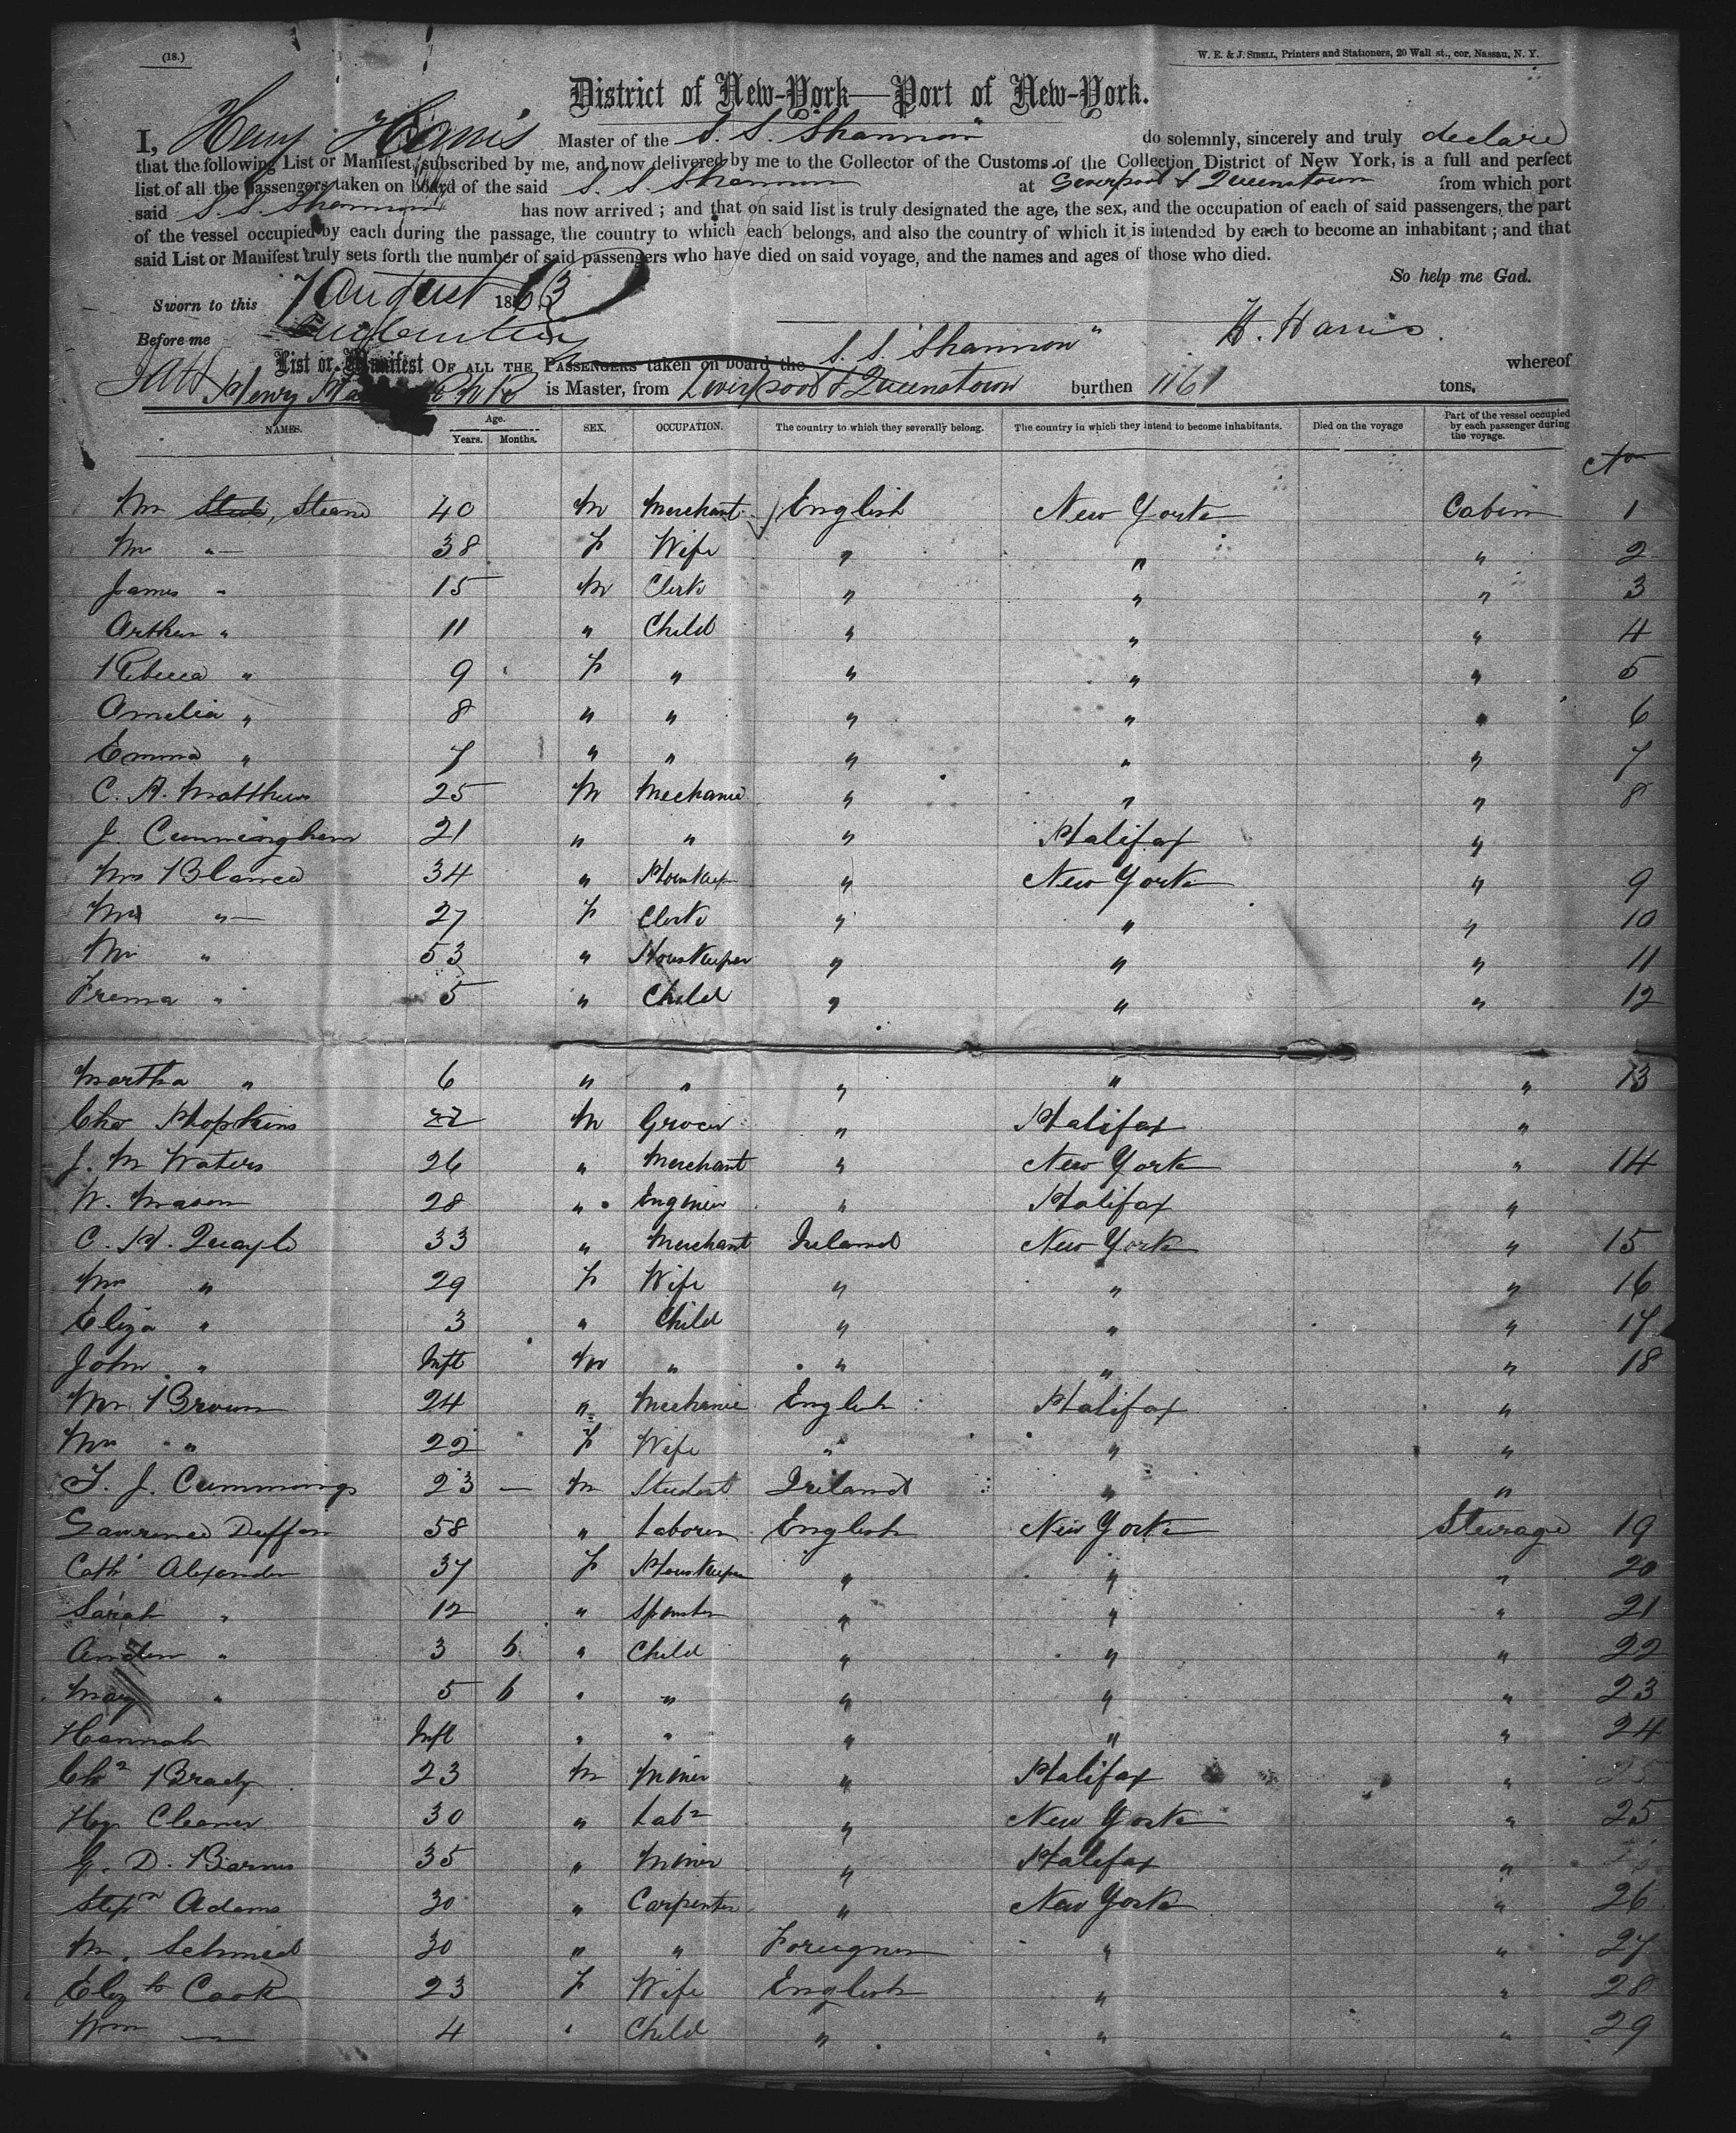 (18.)
W. E. & J. SIBELL, Printers and Stationers, 20 Wall st., cor. Nassau, N. Y.
District of New-York—Port of New-York.
I, Henry Harris Master of the S. S. Shannon do solemnly, sincerely and truly declare
that the following List or Manifest, subscribed by me, and now delivered by me to the Collector of the Customs of the Collection District of New York, is a full and perfect
list of all the passengers taken on board of the said S. S. Shannon at Liverpool & Queenstown from which port
said S. S. Shannon has now arrived; and that on said list is truly designated the age, the sex, and the occupation of each of said passengers, the part
of the vessel occupied by each during the passage, the country to which each belongs, and also the country of which it is intended by each to become an inhabitant; and that
said List or Manifest truly sets forth the number of said passengers who have died on said voyage, and the names and ages of those who died.
So help me God.
Sworn to this 7 August 1863
Before me H. Harris
List or Manifest OF ALL THE PASSENGERS taken on board the S. S. Shannon" whereof
Henry is Master, from Liverpool & Queenstown burthen 1161 tons.
NAMES. Age. Years. Months. SEX. OCCUPATION. The country to which they severally belong. The country in which they intend to become inhabitants. Died on the voyage Part of the vessel occupied by each passenger during the voyage.
Mr Steane 40 M Merchant English New York Cabin 1
Mrs " 38 F Wife " " " 2
James " 15 M Clerk " " " 3
Arthur " 11 " Child " " " 4
Rebecca " 9 F " " " " 5
Amelia " 8 " " " " " 6
Emma " 7 " " " " " 7
C. A. Matthews 25 M Mechanic " " " 8
J. Cunningham 21 " " " Halifax "
Mrs 34 " " New York " 9
" 27 F Clerk " " " 10
" 53 " HousKeeper " " " 11
" 5 " Child " " " 12
Martha " 6 " " " " " 13
Chas Hopkins 22 M Grocer " Halifax "
J. M Waters 26 " Merchant " New York " 14
W. Mason 28 " Engineer " Halifax "
C. H. Quayle 33 " Merchant Ireland New York " 15
Mrs " 29 F Wife " " " 16
Eliza " 3 " Child " " " 17
John " Inft M " " " " 18
Mr Brown 24 " Mechanic English Halifax "
Mrs " 22 F Wife " " "
T. J. Cummings 23 — M Student Ireland " "
Lawrence 58 " Laborer English New York Steerage 19
Cath Alexander 37 F HousKeeper " " " 20
Sarah " 12 " Spinster " " " 21
" 3 6 " Child " " " 22
Mary " 5 6 " " " " " 23
Hannah Inft " " " " " 24
Chs Brady 23 M Miner " Halifax "
Hy 30 " Labr " New York " 25
G. D. Barnes 35 " Miner " Halifax "
Stepn Adams 30 " Carpenter " New York " 26
M. Schmid 30 " " Foreigner " " 27
Elizth Cook 23 F Wife English " " 28
Wm — 4 " Child " " " 29